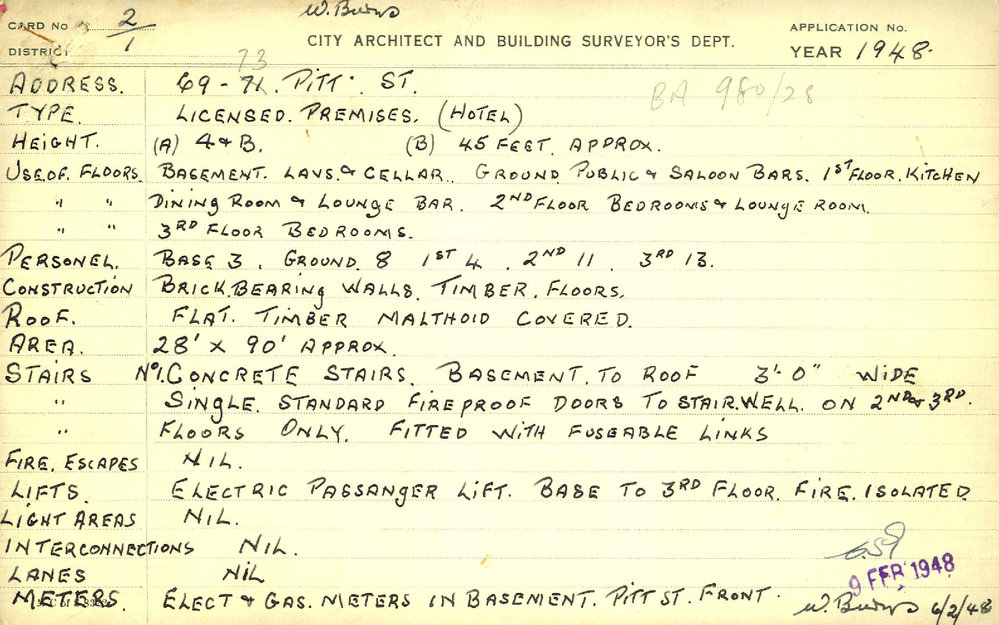 W. Burns
CARD NO 2/1
APPLICATION NO.
DISTRICT
CITY ARCHITECT AND BUILDING SURVEYOR'S DEPT.
YEAR 1948.
73
ADDRESS. 69-71. PITT. ST.
BA 980/28
TYPE. LICENSED. PREMISES. (HOTEL)
HEIGHT. (A) 4 & B. (B) 45 FEET. APPROX.
USE.OF. FLOORS. BASEMENT. LAVS. & CELLAR. GROUND. PUBLIC & SALOON BARS. 1ST FLOOR. KITCHEN
" " DINING ROOM & LOUNGE BAR. 2ND FLOOR BEDROOMS & LOUNGE ROOM.
" " 3RD FLOOR BEDROOMS.
PERSONEL. BASE 3. GROUND. 8 1ST 4. 2ND 11. 3RD 13.
CONSTRUCTION BRICK.BEARING WALLS. TIMBER. FLOORS.
ROOF. FLAT. TIMBER MALTHOID COVERED.
AREA. 28' X 90' APPROX.
STAIRS No 1. CONCRETE STAIRS. BASEMENT. TO ROOF 3'-0" WIDE
" SINGLE. STANDARD FIREPROOF DOORS TO STAIR.WELL. ON 2ND & 3RD.
" FLOORS ONLY. FITTED WITH FUSEABLE LINKS
FIRE. ESCAPES NIL.
LIFTS. ELECTRIC PASSANGER LIFT. BASE TO 3RD FLOOR. FIRE. ISOLATED
LIGHT AREAS NIL.
INTERCONNECTIONS NIL.
LANES NIL
9 FEB 1948
METERS. ELECT & GAS. METERS IN BASEMENT. PITT ST. FRONT.
W. Burns 6/2/48